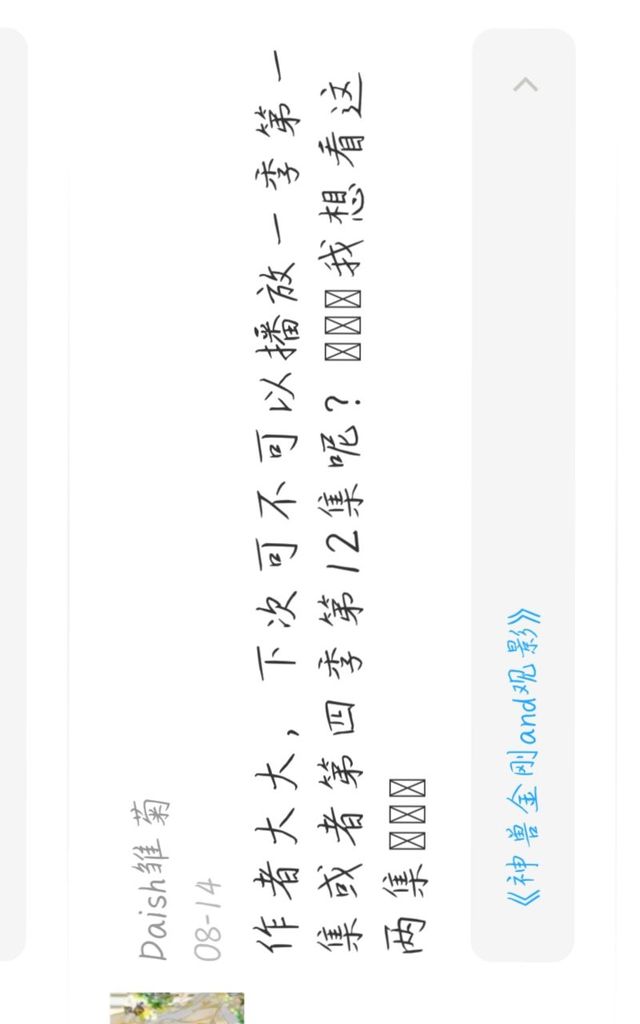 Daish雏菊
08-14
作者大大，下次可不可以播放一季第一
集或者第四季第12集呢？□□□我想看这
两集□□□
《神兽金刚and观影》